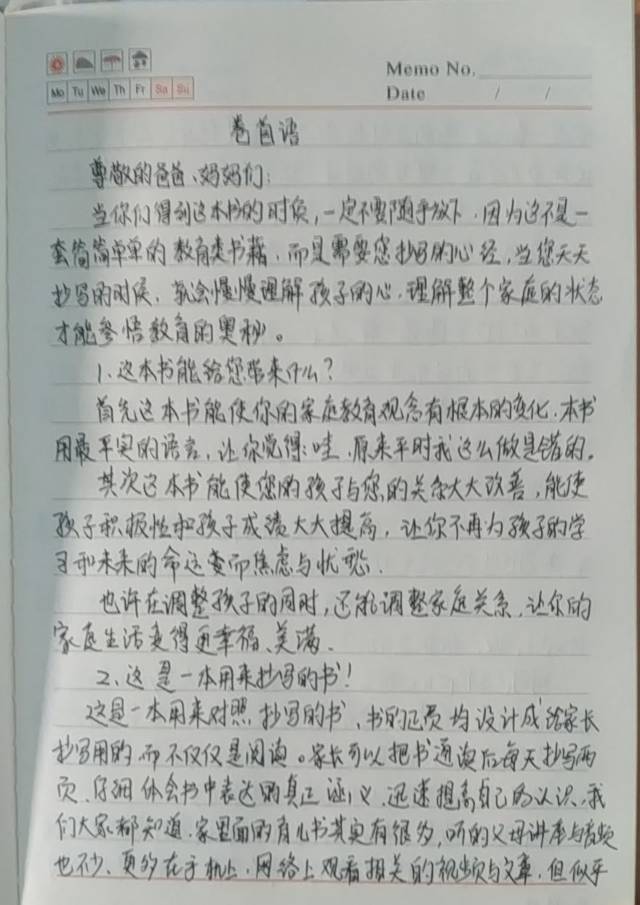 Memo No.
Mo Tu We Th Fr Sa Su
Date / /
卷首语
尊敬的爸爸、妈妈们:
当你们得到这本书的时候,一定不要随手放下,因为这不是一
套简简单单的教育类书籍,而是需要您抄写的心经,当您天天
抄写的时候,就会慢慢理解孩子的心,理解整个家庭的状态
才能参悟教育的奥秘。
1、这本书能给您带来什么?
首先这本书能使你的家庭教育观念有根本的变化,本书
用最平实的语言,让你觉得:哇,原来平时我这么做是错的。
其次这本书能使您的孩子与您的关系大大改善,能使
孩子积极性和孩子成绩大大提高,让你不再为孩子的学
习和未来的命运变而焦虑与忧愁.
也许在调整孩子的同时,还能调整家庭关系,让你的
家庭生活变得更幸福、美满.
2、这是一本用来抄写的书!
这是一本用来对照抄写的书,书的页均设计成给家长
抄写用的,而不仅仅是阅读。家长可以把书通读后每天抄写两
页,仔细体会书中表达的真正涵义,迅速提高自己的认识,我
们大家都知道,家里面的育儿书其实有很多,听的父母讲座与音频
也不少,更多在手机上,网络上观看相关的视频与文章,但似乎